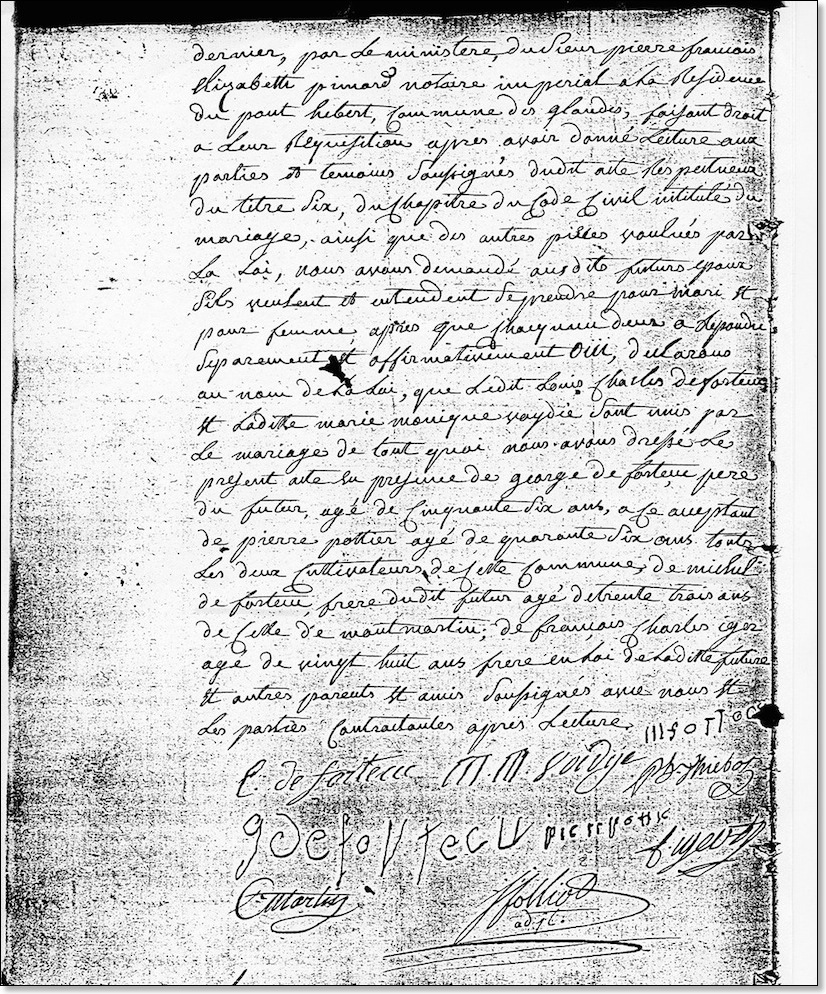 dernier, par Le ministere, du Sieur pierre francois
Elizabeth pinard notaire imperial a La Residence
du pont hebert, Commune des glandes, faisant droit
a Leur Requisition apres avoir donné Lecture aux
parties et temoins Soussignés dudit acte Respectueux
du titre Six, du Chapitre du Code Civil intitulé du
mariage, ainsi que des autres pieces voulues par
La Loi, nous avons demandé ausdits futurs epoux
Sils veulent et entendent Se prendre pour mari et
pour femme, apres que chacqun deux a Repondu
Separement et affirmativement OUI, declarons
au nom de La Loi, que Ledit Louis Charles deforteu
et Laditte marie monique vaydie Sont unis par
Le mariage de tout quoi nous avons dressé Le
present acte en presence de george de fortecu pere
du futur, agé de Cinquante Six ans, a ce aceptant
de pierre pottier agé de quarante Six ans touts
Les deux Cultivateurs de Cette Commune, de michel
de forteCu, frere dudit futur agé de trente trois ans
de Celle de montmartin; de francois Charles
agé de vingt huit ans frere en Loi de Laditte future
et autres parents et amis Soussignés avec nous et
Les parties Contractantes apres Lecture.
de forteCu M. M.
g de forteCU
Martin Folliot
adjt.